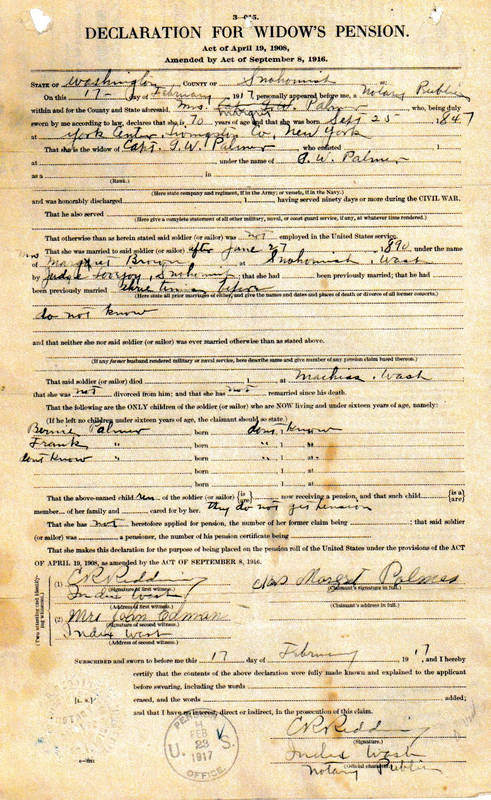 DECLARATION FOR WIDOW'S PENSION.
Act of April 19, 1908,
Amended by Act of September 8, 1916.
STATE OF Washington COUNTY OF Snohomish
On this 17 day of February 1917, personally appeared before me, a Notary Public
within and for the County and State aforesaid, Mrs. Palmer who, being duly
sworn by me according to law, declares that she is 70 years of age and that she was born Sept 25 1847
at York Center, Livingston Co, New York
That she is the widow of Capt. T. W. Palmer who enlisted 1
at under the name of T. W. Palmer
as a in
(Rank.)
(Here state company and regiment, if in the Army; or vessels, if in the Navy.)
and was honorably discharged 1 , having served ninety days or more during the CIVIL WAR.
That he also served
(Here give a complete statement of all other military, naval, or coast guard service, if any, at whatever time rendered.)
That otherwise than as herein stated said soldier (or sailor) was not employed in the United States service.
That she was married to said soldier (or sailor) after June 27 1890, under the name
of Brown at Snohomish, Wash
by Judge Snohomish; that she had been previously married; that he had
been previously married three times before
(Here state all prior marriages of either, and give the names and dates and places of death or divorce of all former consorts.)
do not know
and that neither she nor said soldier (or sailor) was ever married otherwise than as stated above.
(If any former husband rendered military or naval service, here describe same and give number of any pension claim based thereon.)
That said soldier (or sailor) died 1 at Machias, Wash
that she was not divorced from him; and that she has not remarried since his death.
That the following are the ONLY children of the soldier (or sailor) who are NOW living and under sixteen years of age, namely:
(If he left no children under sixteen years of age, the claimant should so state.)
Bernie Palmer born dont Know
Frank " born " 1 at "
dont Know " born " 1 at "
born , 1 at
born , 1 at
That the above-named child ren of the soldier (or sailor) {is are} now receiving a pension, and that such child {is a are}
member of her family and cared for by her. They do not get pension
That she has not heretofore applied for pension, the number of her former claim being ; that said soldier
(or sailor) was a pensioner, the number of his pension certificate being
That she makes this declaration for the purpose of being placed on the pension roll of the United States under the provisions of the ACT
OF APRIL 19, 1908, as amended by the ACT OF SEPTEMBER 8, 1916.
(Two attesting and identifying witnesses.)
(1) C R Redding Mrs Margret Palmer
(Signature of first witness.) (Claimant's signature in full.)
Index Wash
(Address of first witness.) (Claimant's address in full.)
(2) Mrs Edman
(Signature of second witness.)
Index Wash
(Address of second witness.)
SUBSCRIBED and sworn to before me this 17 day of February 1917, and I hereby
certify that the contents of the above declaration were fully made known and explained to the applicant
before swearing, including the words
[L. S.] erased, and the words added;
and that I have no interest, direct or indirect, in the prosecution of this claim.
C R Redding
(Signature.)
Index Wash
Notary Public
(Official character.)
PENSION OFFICE
U. S.
FEB 23 1917